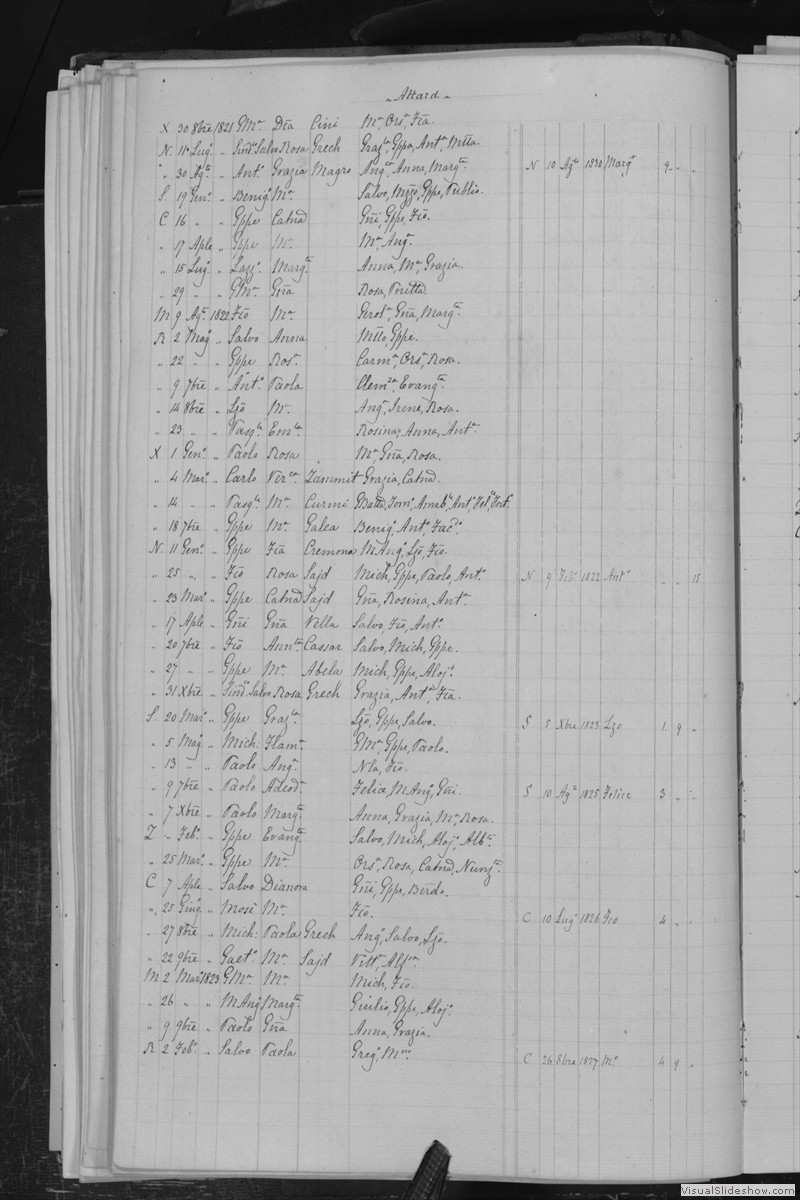 - Attard -
X 30 8bre 1821 GMa. Dta Cini Ma, Orsa, Fta.
N. 11 Lugo. " Sinda. Salvo Rosa Grech Graza, Gppa, Anta, Mtta.
" 30 Ago. " Anto. Grazia Magro Anga, Anna, Marga. N 10 Ago 1830 Marga 9 " "
S. 19 Geno. " Benigo. Ma. Salvo, Nzzo, Gppe, Publio.
C 16 " " Gppe Catnd Gni, Gppe, Fio.
" 17 Aple " Gppe Ma. Ma, Ango.
" 15 Lugo. " Lazzo. Marga. Anna, Ma, Grazia.
" 29 " " GMa. Gna Rosa
M 9 Ago. 1822 Fio Ma. Gerola, Gna, Marga.
R 2 Mago " Salvo Anna Mtto, Gppe.
" 22 " " Gppe Rosa. Carma, Orsa, Rosa.
" 9 7bre " Anto. Paola Clemza, Evanga.
" 14 8bre " Lzo Ma. Anga, Irene, Rosa.
" 23 " " Pasqle. Emla. Rosina, Anna, Anta.
X 1 Geno. " Paolo Rosa Ma, Gna, Rosa.
" 4 Maro. " Carlo Verca Zammit Grazia, Catnd.
" 14 " " Pasqle. Ma. Curmi Matta
" 18 7bre " Gppe Ma. Galea Benigo, Anto
N. 11 Geno. " Gppe Fia Cremona MAngo, Lzo, Fio.
" 25 " " Fio Rosa Sajd Mich, Gppe, Paolo, Anto. N 9 Febo 1822 Anto " " 15
" 23 Maro. " Gppe Catnd Sajd Gna, Rosina, Anta.
" 17 Aple " Gni Gna Vella Salvo, Fio, Anto.
" 20 7bre " Fio Annta. Cassar Salvo, Mich, Gppe.
" 27 " " Gppe Ma. Abela Mich, Gppe, Alojo.
" 31 Xbre " Sinda. Salvo Rosa Grech Grazia, Anta, Fia.
S. 20 Maro. " Gppe Grazla. Lzo, Gppe, Salvo. S 5 Xbre 1823 Lzo 1 9 "
" 5 Mago " Mich: Flama. GMa, Gppe, Paolo.
" 13 " " Paolo Anga. Nla, Fio.
" 9 7bre " Paolo Adeoda. Felice, MAngo, Gni. S 10 Ago 1825 Felice 3 " "
" 7 Xbre " Paolo Marga. Anna, Grazia, Ma, Rosa.
Z " Febo. " Gppe Evanga. Salvo, Mich, Alojo, Albto.
" 25 Maro. " Gppe Ma. Orsa, Rosa, Catnd, Nunza.
C 7 Aple " Salvo Dianora Gni, Gppe, Berdo.
" 25 Giugo " Mosè Ma. Fio. C 10 Lugo 1826 Fio 4 " "
" 27 8bre " Mich: Paola Grech Ango, Salvo, Lzo.
" 22 9bre " Gaeto. Ma. Sajd
M 2 Maro 1823 GMa. Ma. Mich, Fio.
" 26 " " MAngo Marga. Giulio, Gppe, Alojo.
" 9 9bre " Paolo Gna Anna, Grazia.
R 2 Febo. " Salvo Paola Grego C 26 8bre 1827 Mo 4 9 "
VisualSlideshow.com